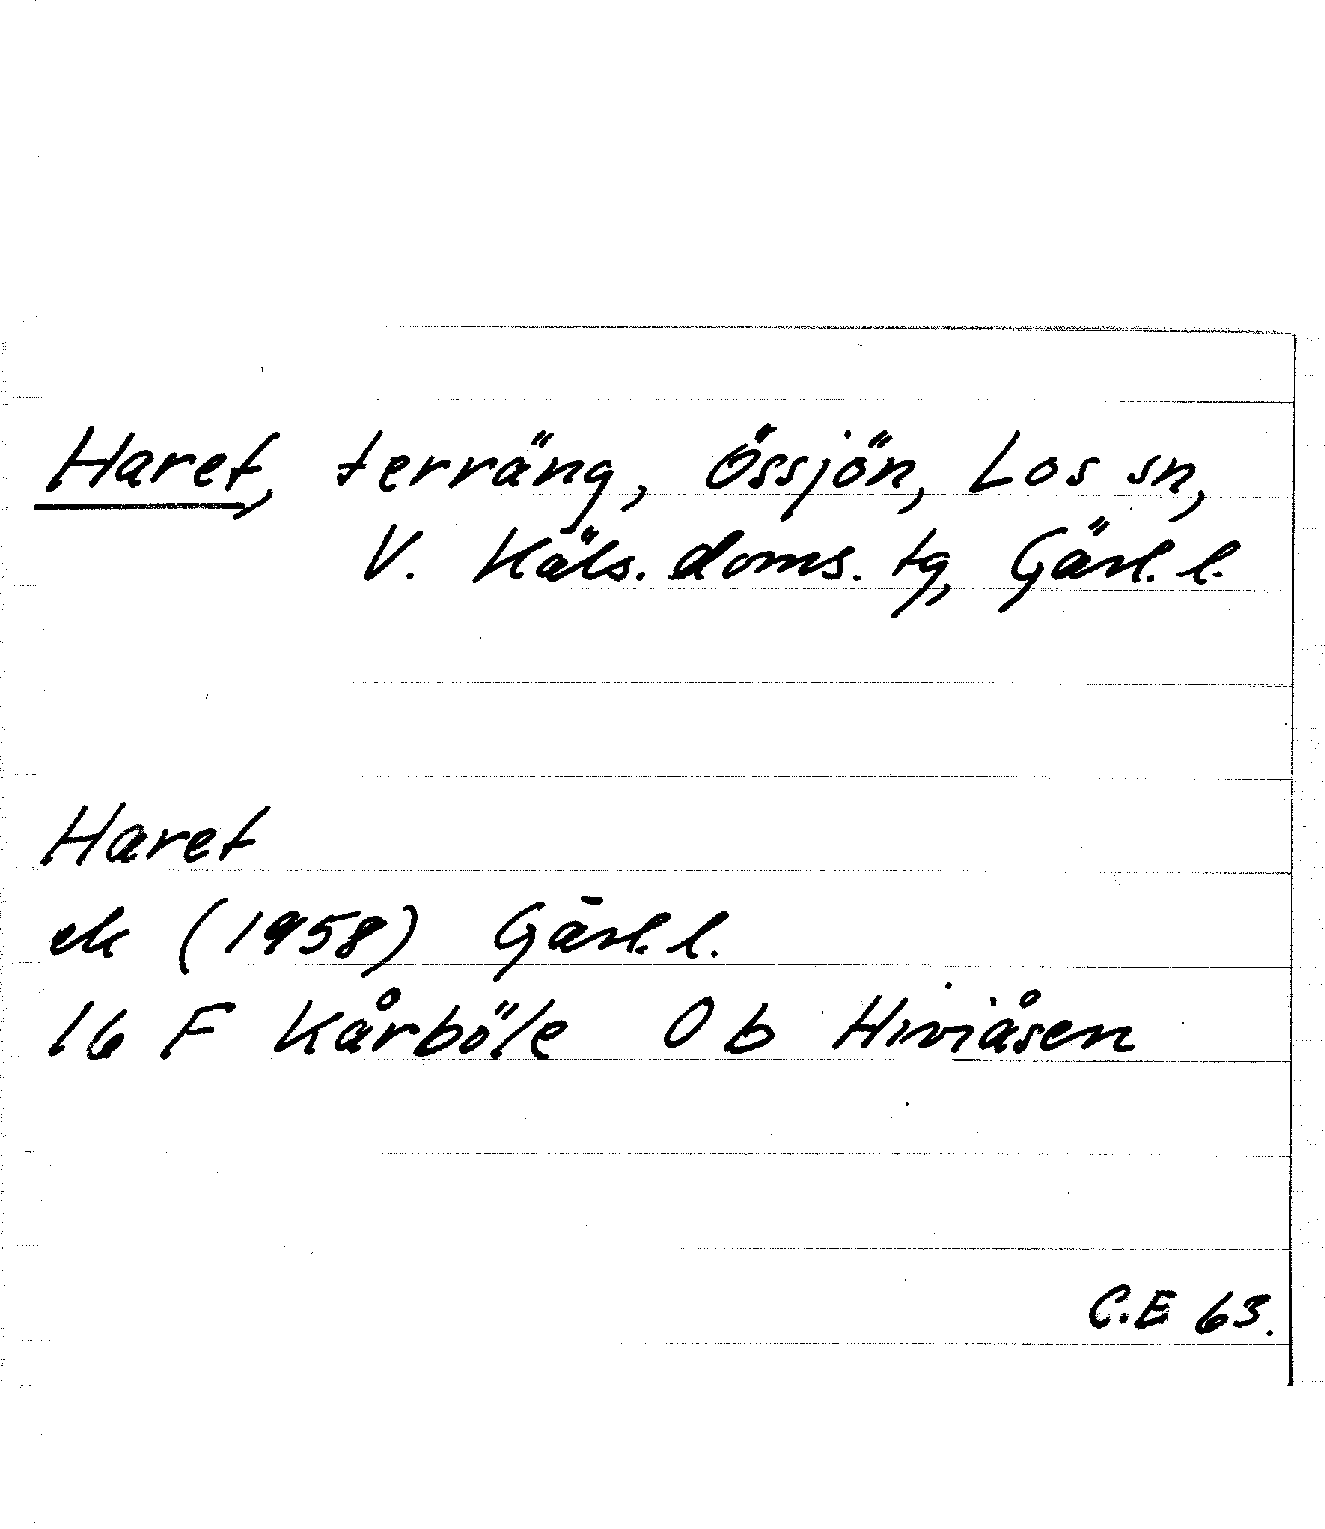 Haret, terräng, Össjön, Los sn,
V. Häls. doms. tg, Gävl. l.
Haret
ek (1958) Gävl. l.
16 F Kårböle 0 b Hiviåsen
C.E 63.